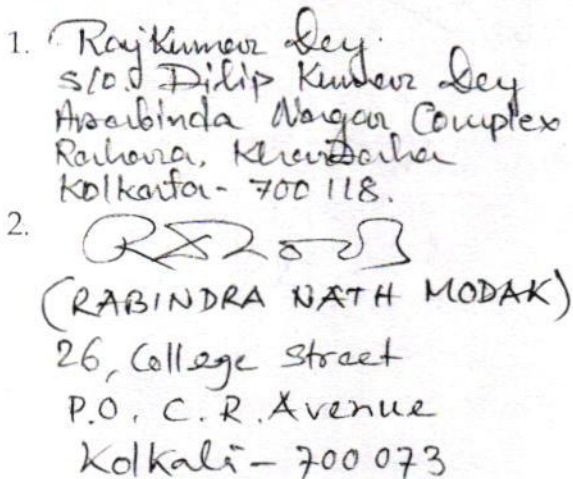 1. Rajkumar Dey.
S/O. Dilip Kumar Dey
Aurobinda Nagar Complex
Rahara, Khardaha
Kolkata - 700 118.
2.
(RABINDRA NATH MODAK)
26, College Street
P.O. C.R. Avenue
Kolkali - 700 073